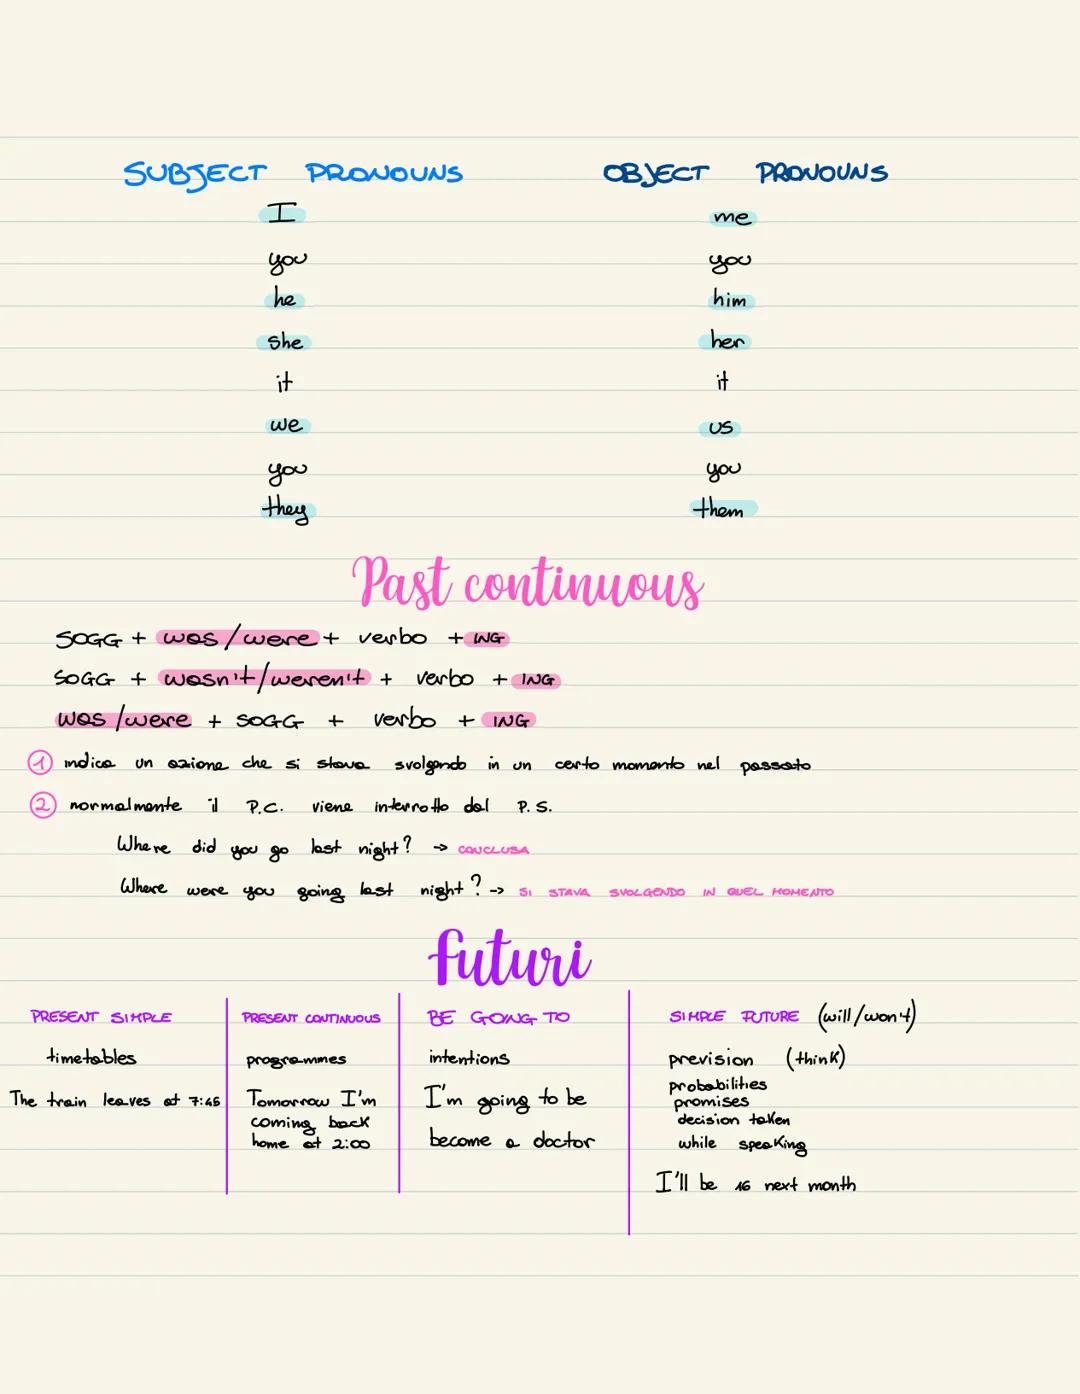 SUBJECT PRONOUNS OBJECT PRONOUNS
I me
you you
he him
she her
it it
we us
you you
they them
Past continuous
SOGG + was/were + verbo + ING
SOGG + wasn't/weren't + verbo + ING
was/were + SOGG + verbo + ING
1 indica un azione che si stava svolgendo in un certo momento nel passato
2 normalmente il P.C. viene interrotto dal P.S.
Where did you go last night? -> CONCLUSA
Where were you going last night? -> SI STAVA SVOLGENDO IN QUEL MOMENTO
futuri
PRESENT SIMPLE
timetables
The train leaves at 7:45
PRESENT CONTINUOUS
programmes
Tomorrow I'm
coming back
home at 2:00
BE GOING TO
intentions
I'm going to be
become a doctor
SIMPLE FUTURE (will/won't)
prevision (think)
probabilities
promises
decision taken
while speaking
I'll be 16 next month